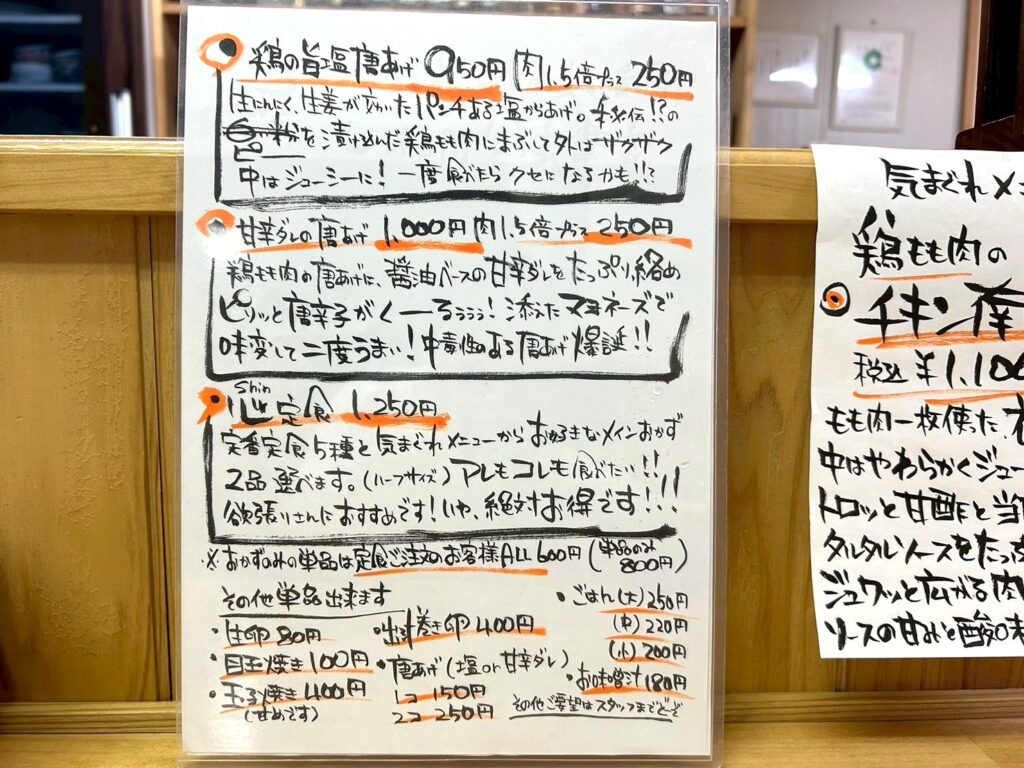 鶏の旨塩唐あげ 950円 肉1.5倍プラス 250円
生にんにく、生姜が効いたパンチある塩からあげ。秘伝!?の
粉を漬け込んだ鶏もも肉にまぶして外はザクザク
中はジューシーに! 一度食べたらクセになるかも!!?
甘辛ダレの唐あげ 1,000円 肉1.5倍プラス 250円
鶏もも肉の唐あげに、醤油ベースの甘辛ダレをたっぷり絡め
ピリッと唐辛子がくーるぅぅぅ! 添えたマヨネーズで
味変して二度うまい! 中毒性のある唐あげ爆誕!!
Shin
心定食 1,250円
定番定食5種と気まぐれメニューからお好きなメインおかず
2品選べます。(ハーフサイズ) アレもコレも食べたい!!
欲張りさんにおすすめです! いや、絶対お得です!!!
※おかずのみの単品は定食ご注文のお客様ALL600円 (単品のみ
800円)
その他単品出来ます
・生卵 80円
・目玉焼き 100円
・玉子焼き 400円
(甘めです)
・出汁巻き卵 400円
・唐あげ (塩or甘辛ダレ)
1コ 150円
2コ 250円
・ごはん(大) 250円
(中) 220円
(小) 200円
・お味噌汁 180円
その他ご要望はスタッフまでどーぞ
気まぐれメニ
鶏もも肉の
チキン南
税込 ¥1,100
もも肉一枚使った、
中はやわらかくジュー
トロッと甘酢と当
タルタルソースをたっ
ジュワッと広がる肉
ソースの甘みと酸味